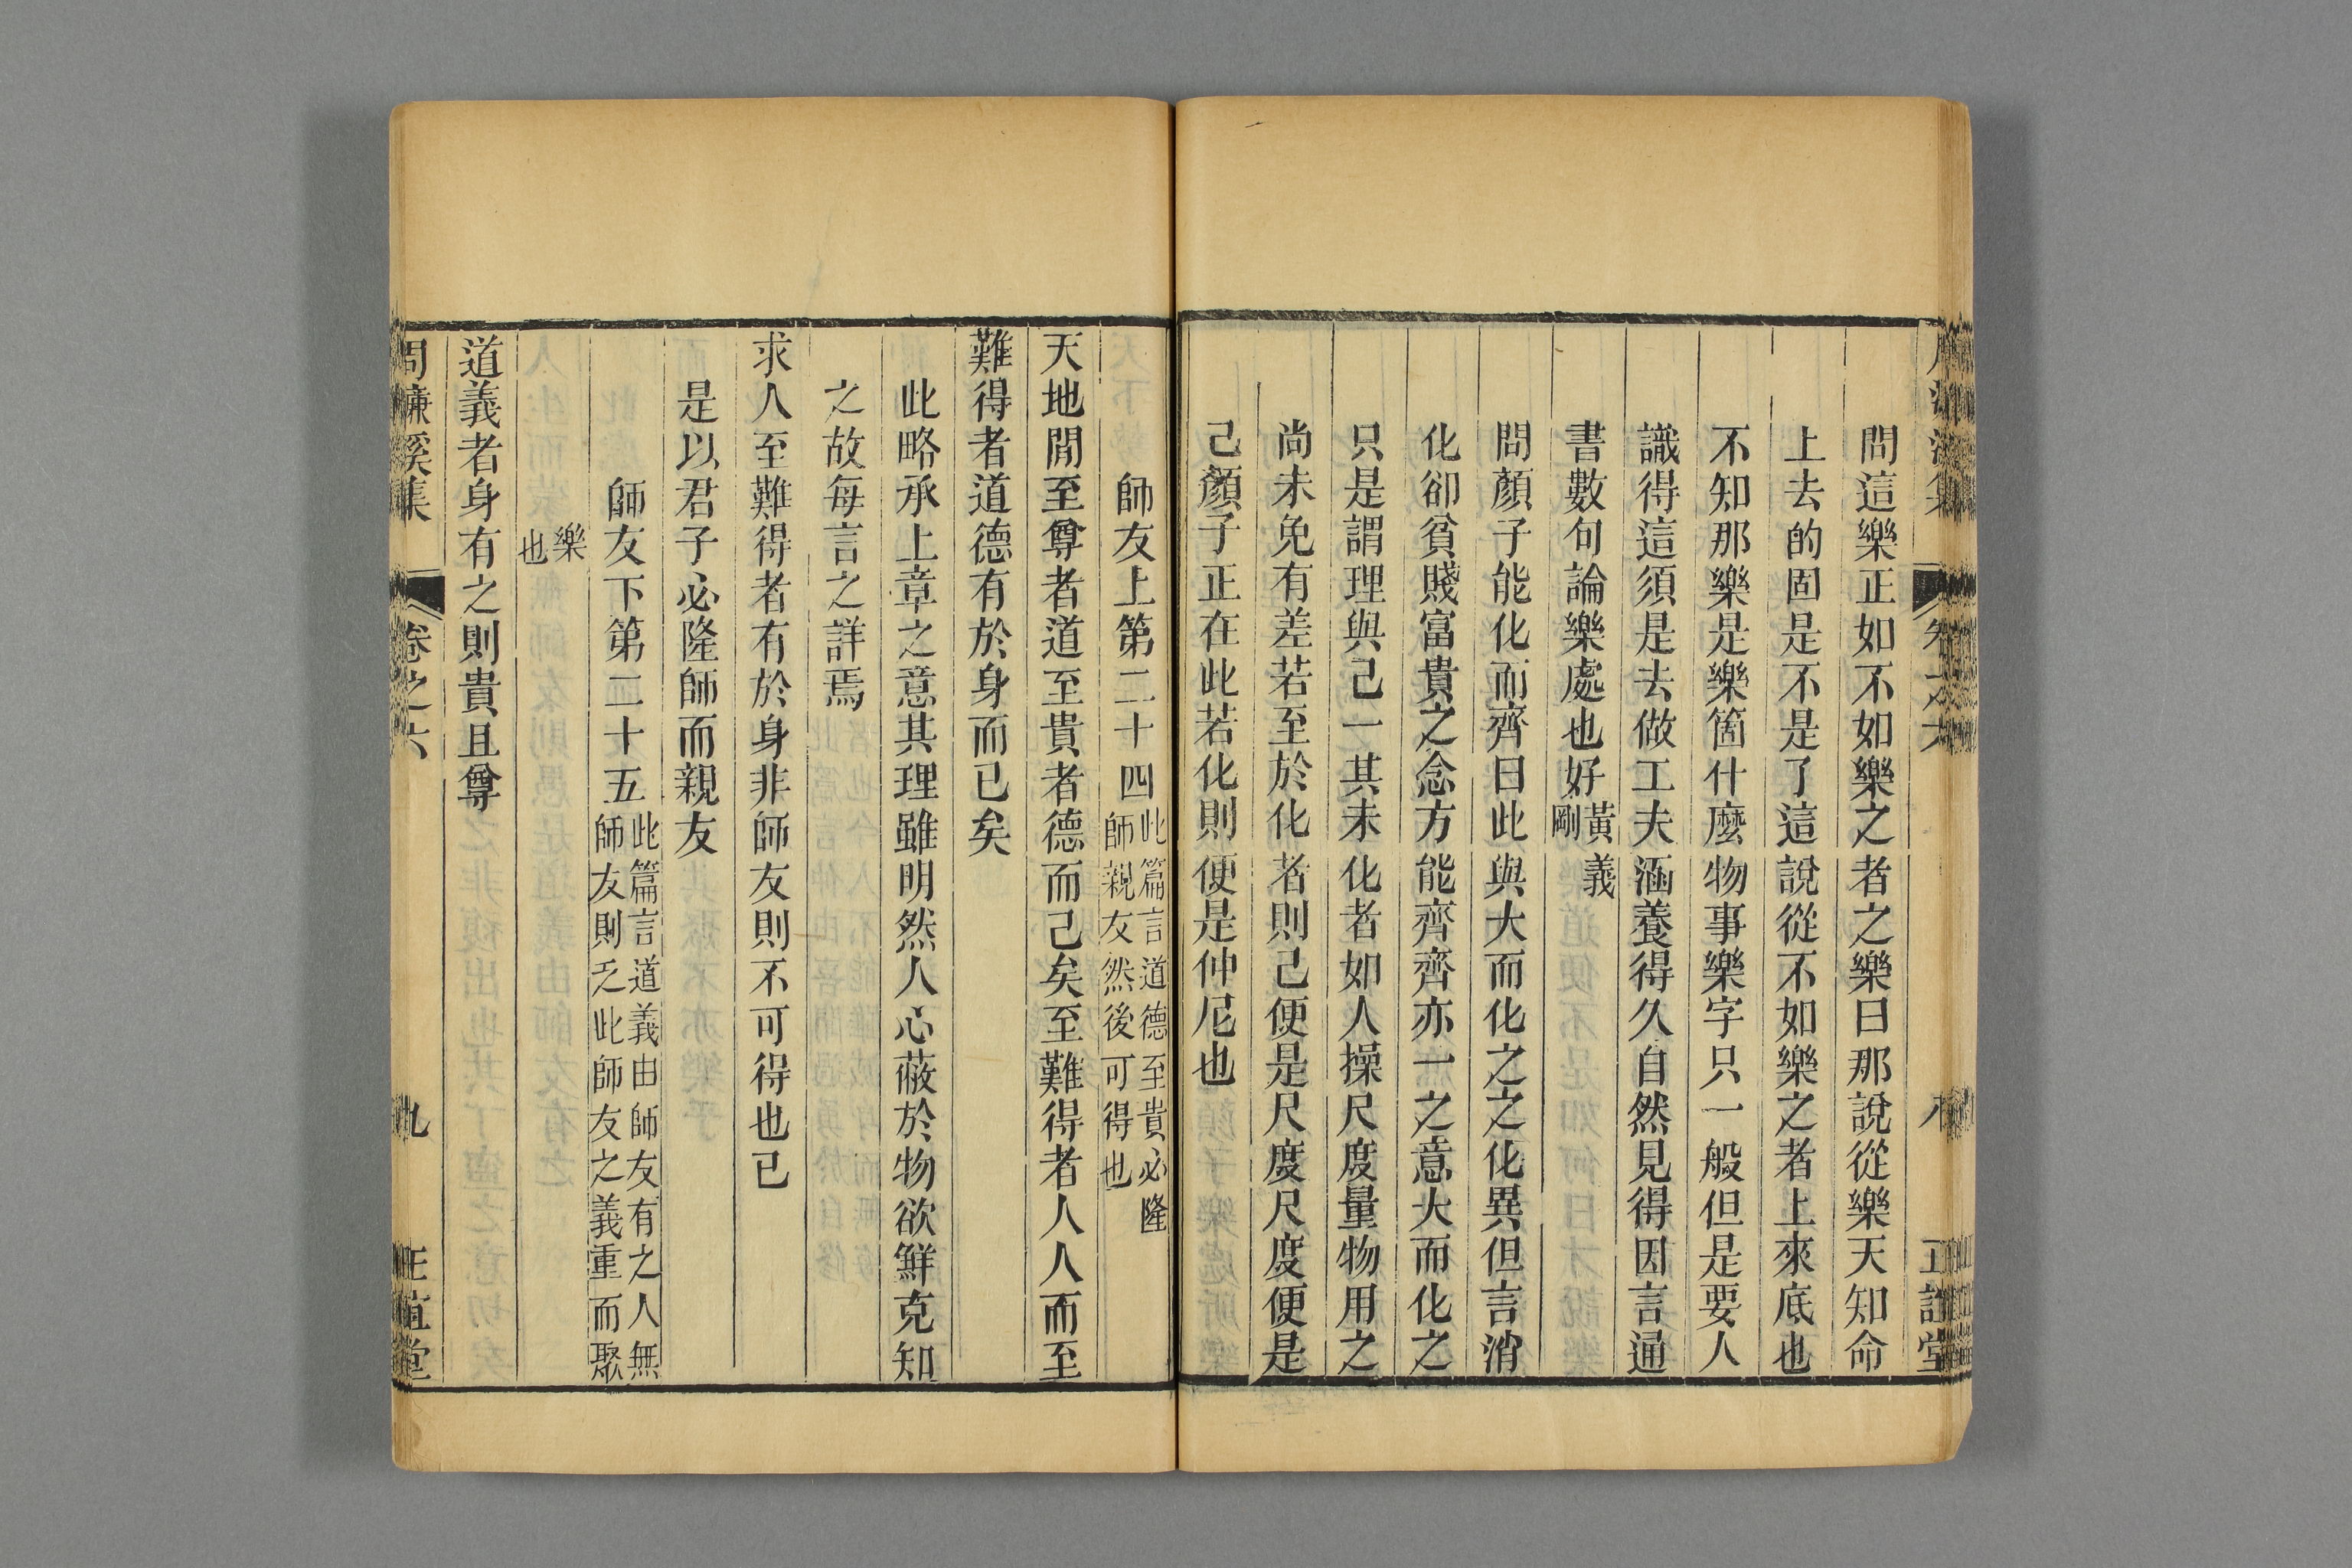 問這樂正如不如樂之者之樂曰那說從樂天知命
上去的固是不是了這說從不如樂之者上來底也
不知那樂是樂箇什麼物事樂字只一般但是要人
識得這須是去做工夫涵養得久自然見得因言通
書數句論樂處也好黃義
剛
問顏子能化而齊曰此與大而化之之化異但言消
化卻貧賤富貴之念方能齊齊亦一之意大而化之
只是謂理與己一其未化者如人操尺度量物用之
尚未免有差若至於化者則己便是尺度尺度便是
己顏子正在此若化則便是仲尼也
師友上第二十四此篇言道德至貴必隆
師親友然後可得也
天地閒至尊者道至貴者德而已矣至難得者人人而至
難得者道德有於身而已矣
此略承上章之意其理雖明然人心蔽於物欲鮮克知
之故每言之詳焉
求人至難得者有於身非師友則不可得也已
是以君子必隆師而親友
師友下第二十五此篇言道義由師友有之人無
師友則乏此師友之義重而聚
樂
也
道義者身有之則貴且尊
周濂溪集 卷之六 九 正誼堂